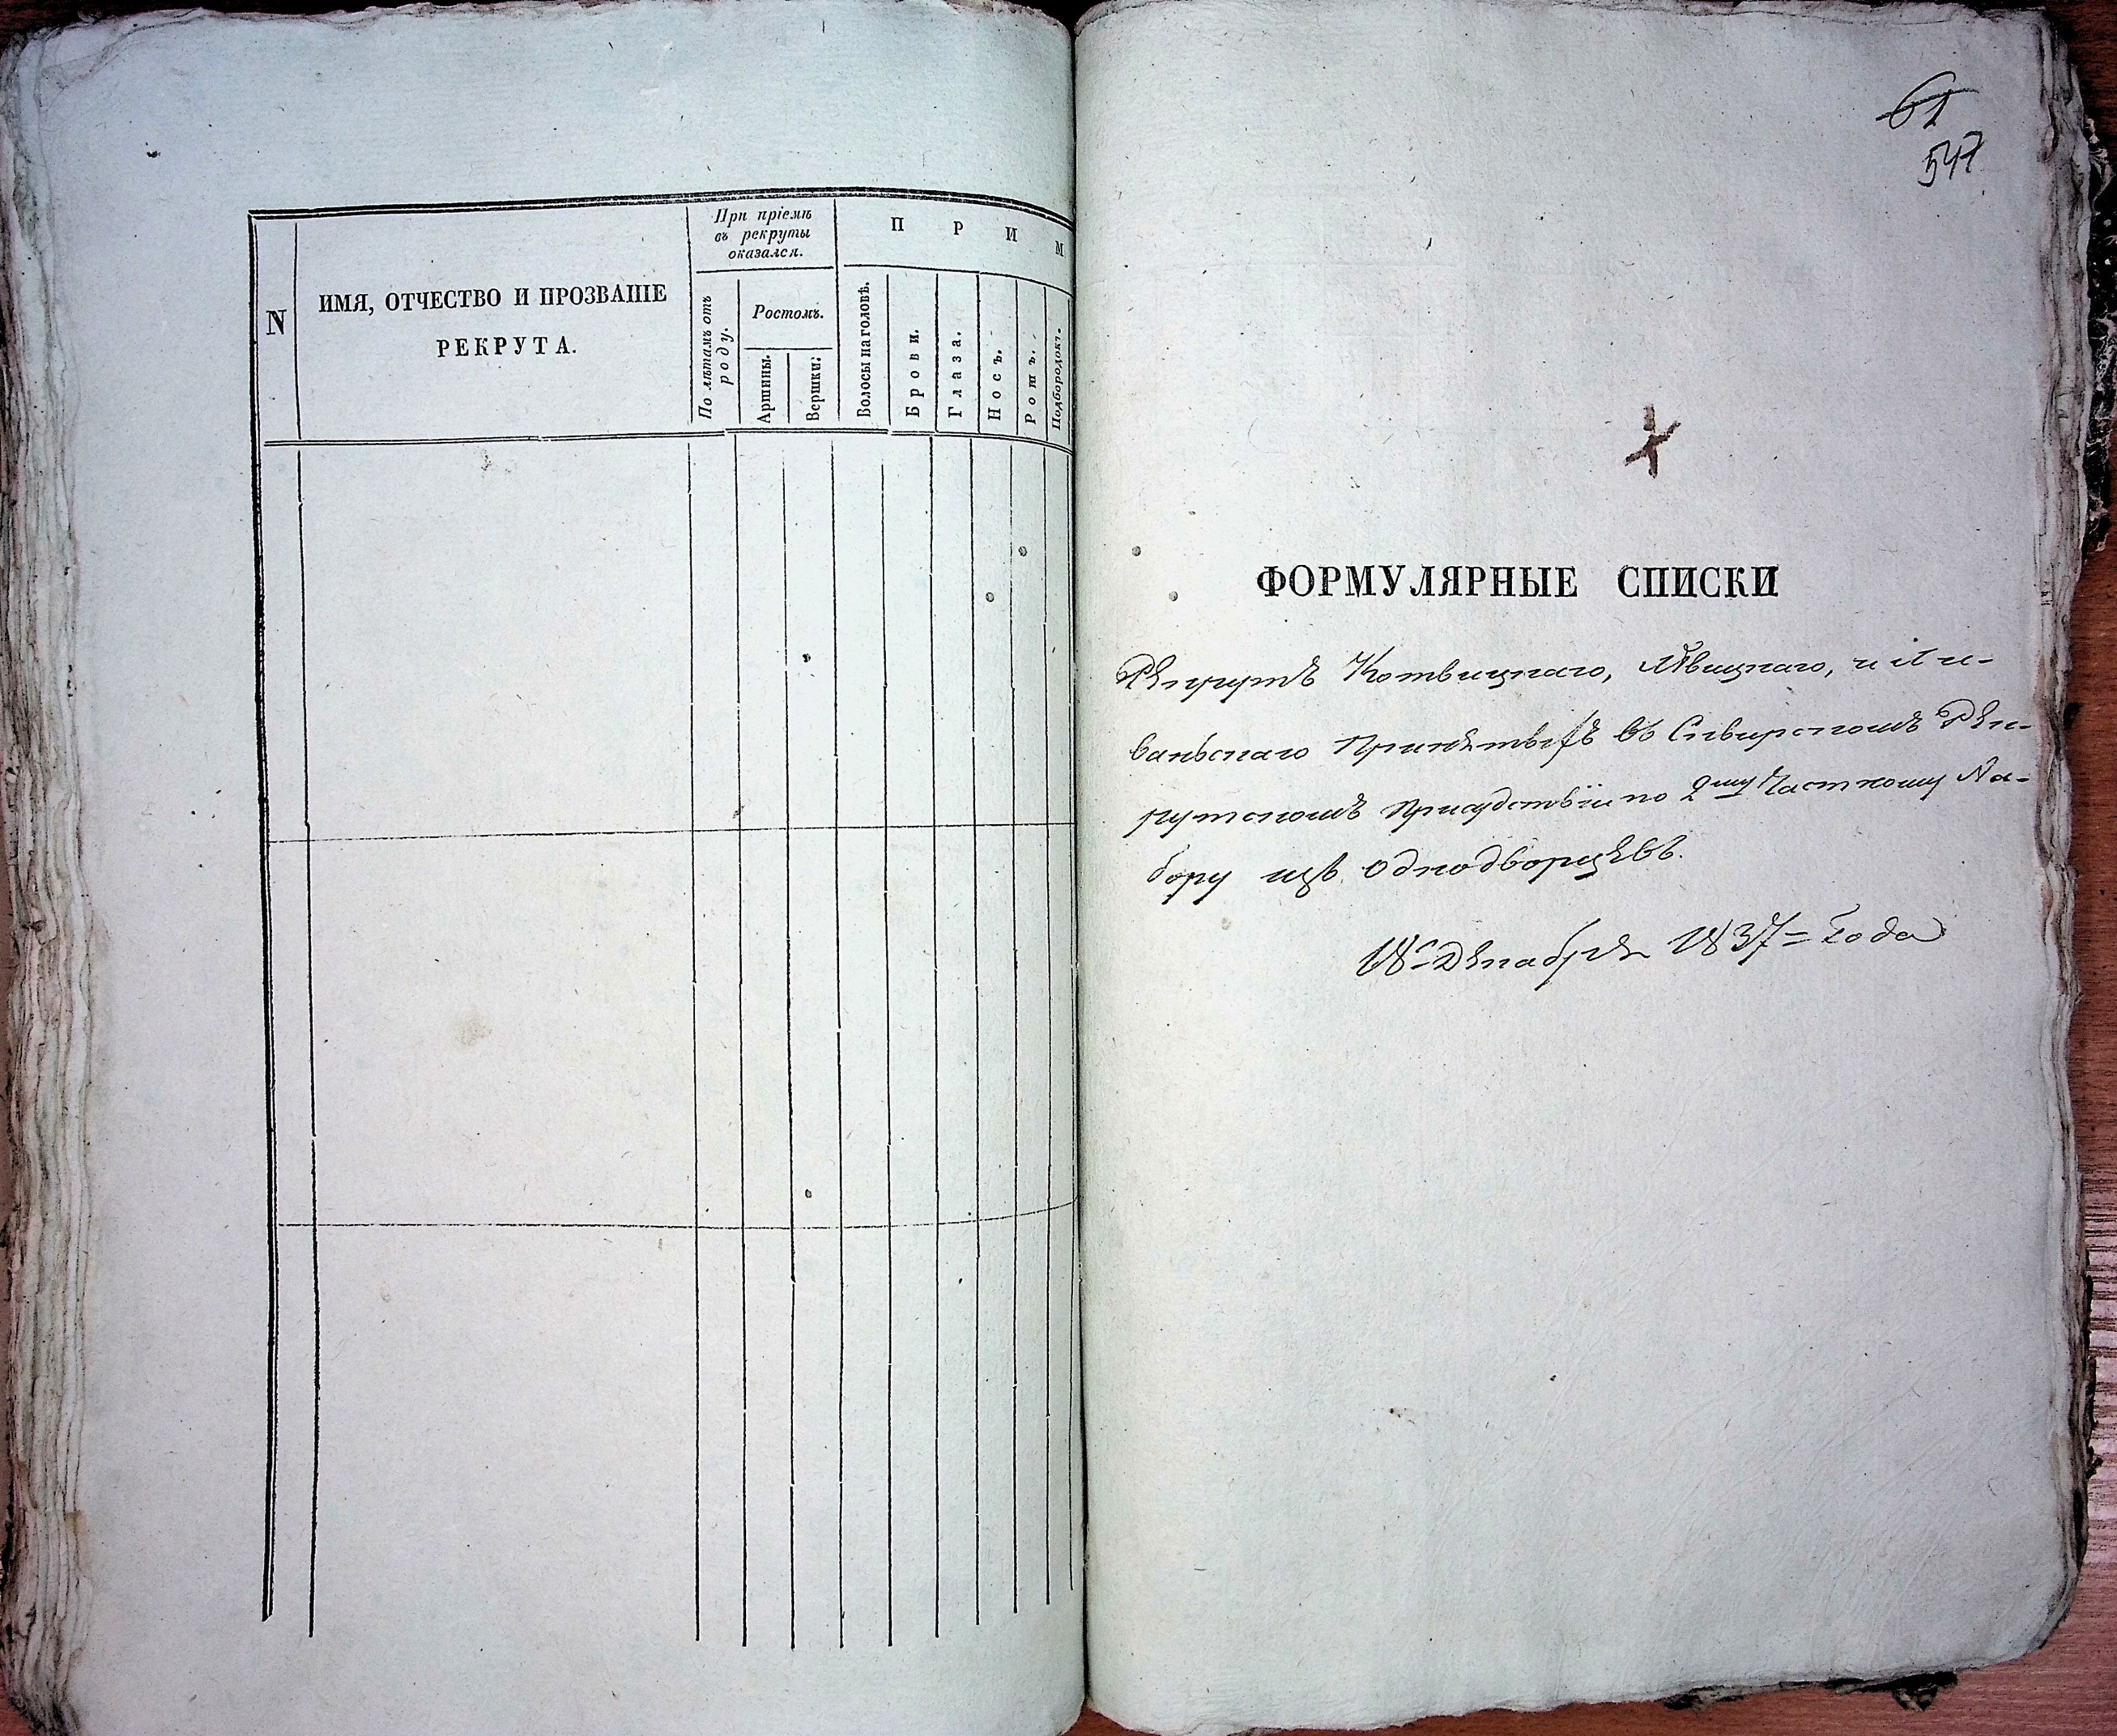 N
ИМЯ, ОТЧЕСТВО И ПРОЗВАНІЕ
РЕКРУТА.
При пріемѣ
въ рекруты
оказался.
По лѣтамъ отъ
роду.
Ростомъ.
Аршины.
Вершки.
П Р И М
Волосы на головѣ.
Брови.
Глаза.
Носъ.
Ротъ.
Подбородокъ.
61
547
ФОРМУЛЯРНЫЕ СПИСКИ
Рекрутъ Котвицкаго, Левицкаго, и Ли-
ваньскаго Принятыхъ въ Сквирскомъ Рек-
рутскомъ Присудствіи по 2му Частному На-
бору изъ Однодворцевъ.
18 Декабря 1837 = Года